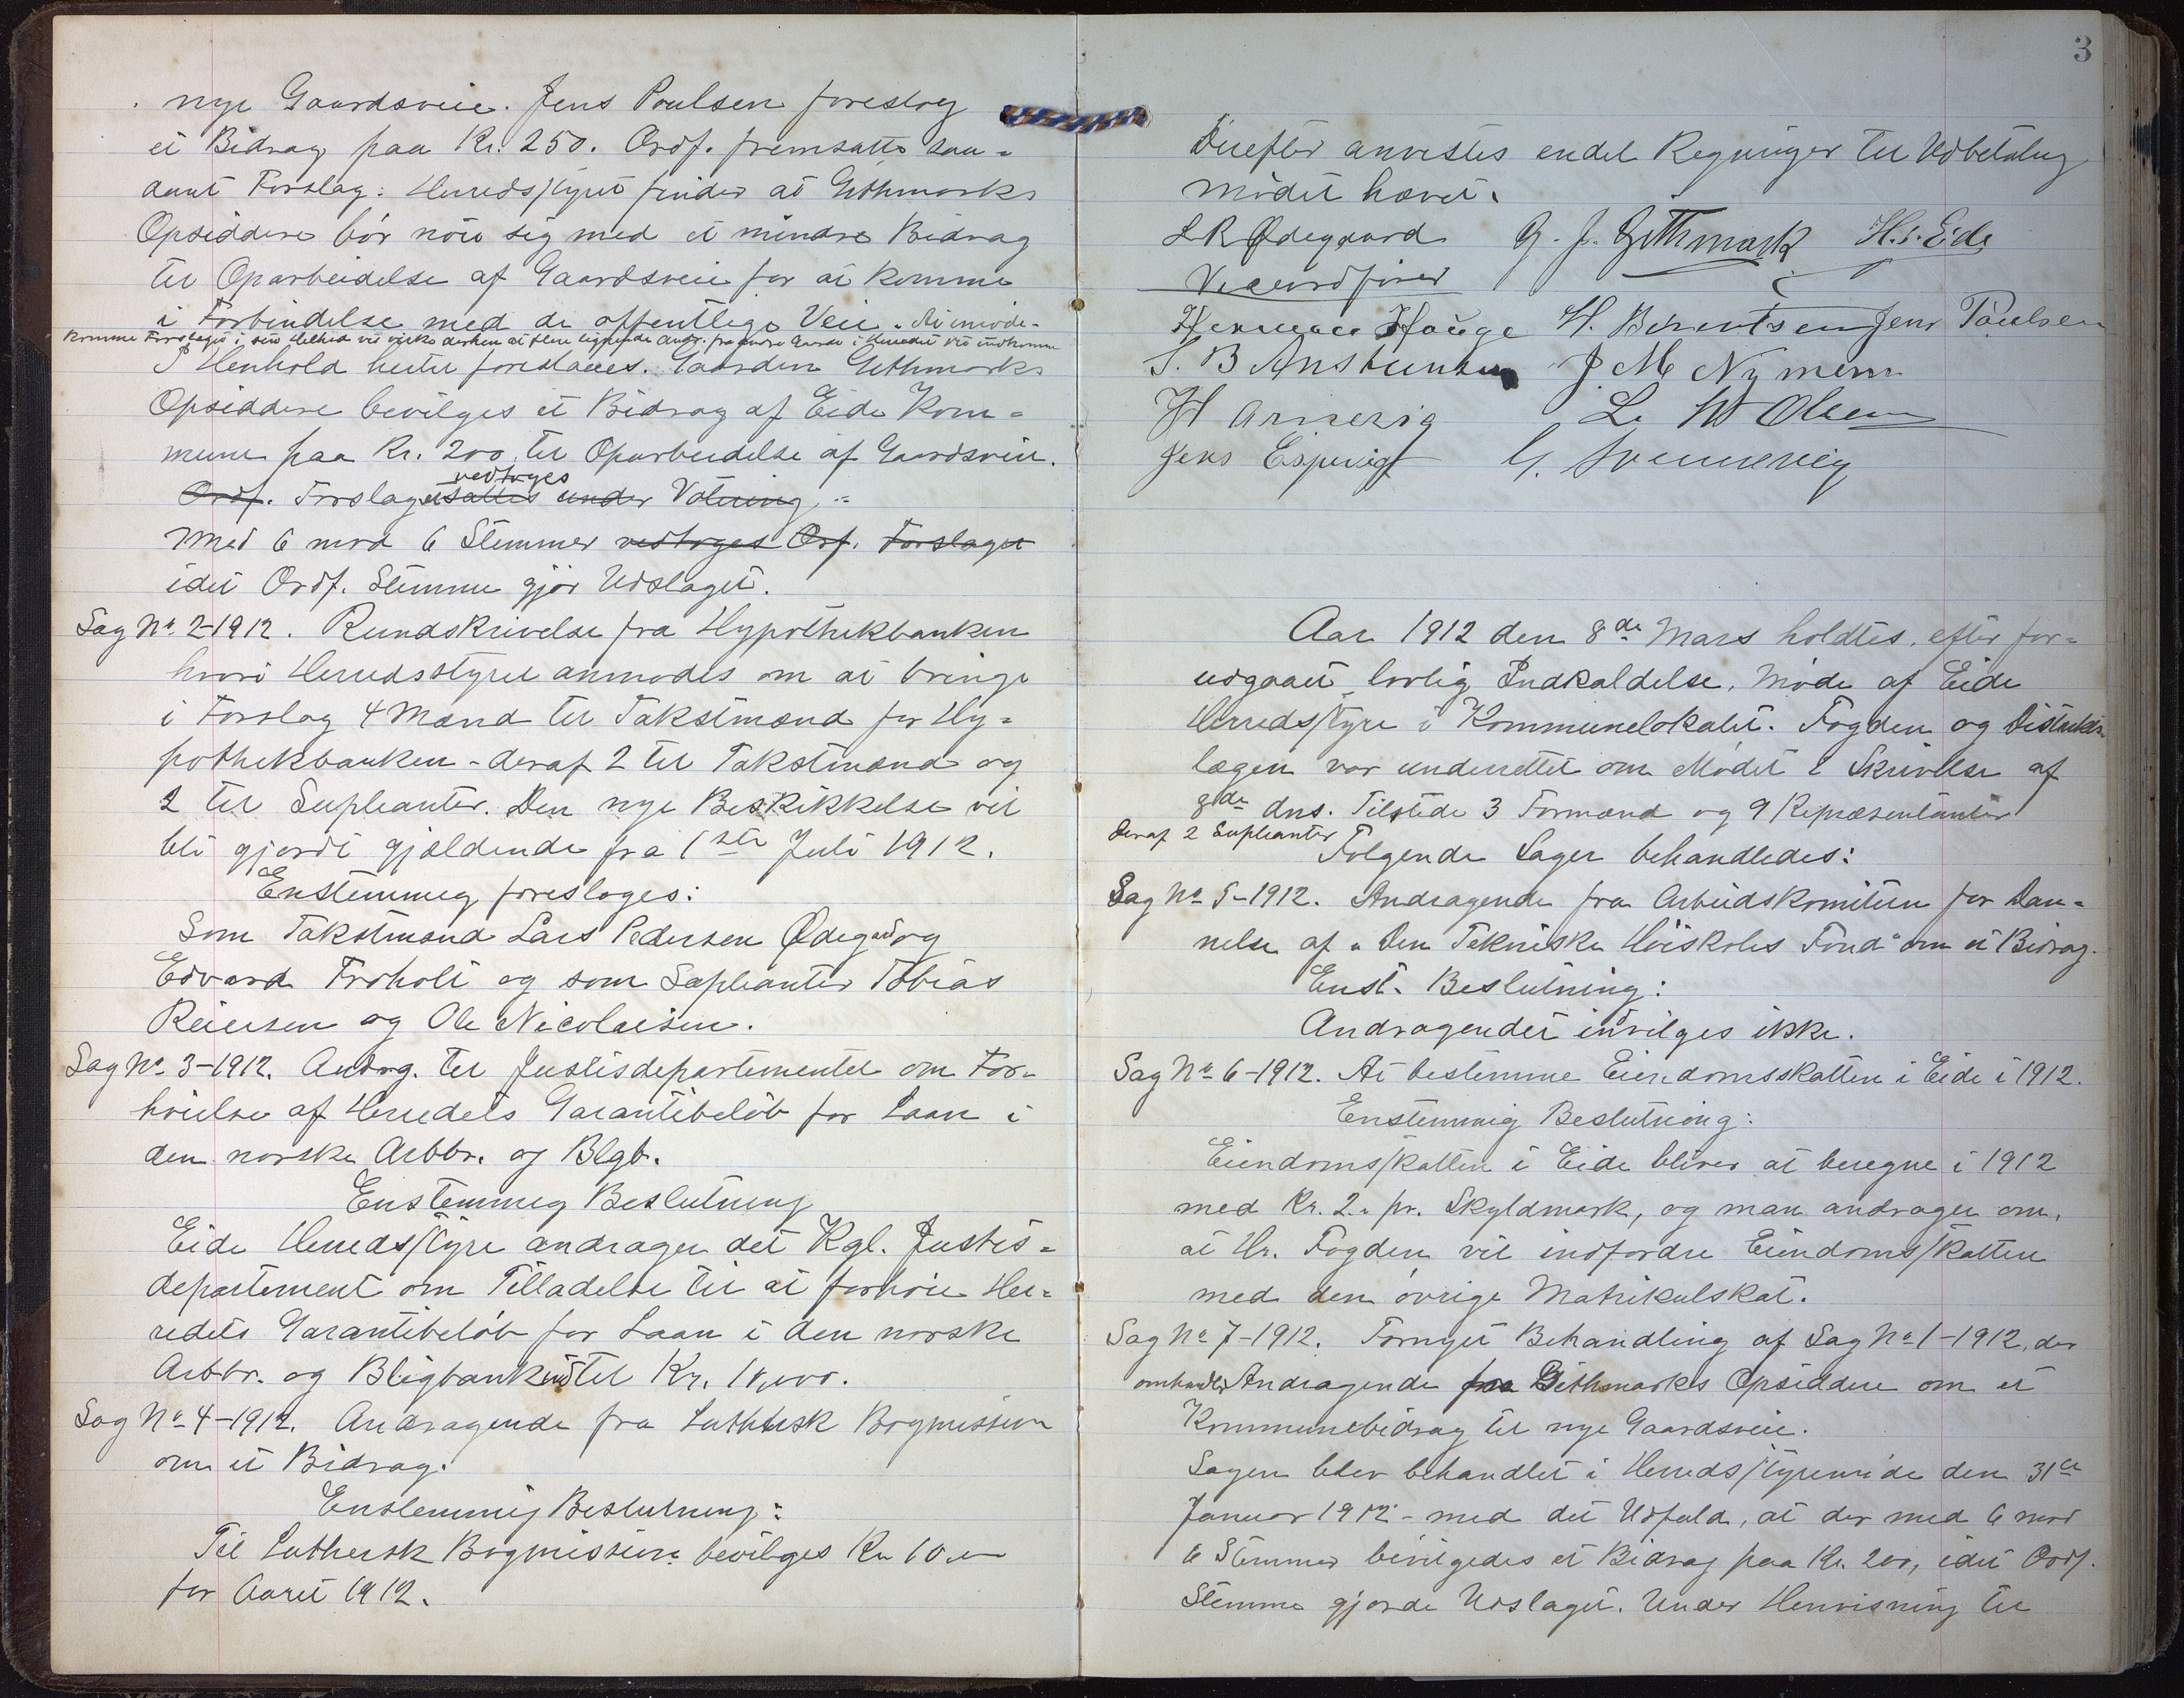 nye Gaardsveie. Jens Poulsen foreslog
et Bidrag paa Kr. 250. Ordf. fremsatte saa-
dant Forslag: Herredsstyret finder at Githmarks
Opsiddere bør nøie sig med et mindre Bidrag
til Oparbeidelse af Gaardsveie for at komme
i Forbindelse med de offentlige Veie. At imøde-
komme Forslaget i sin Helhed vil virke derhen at flere lignende Andr. fra andre Gaarde i Herredet vil indkomme
I Henhold hertil foreslaaes. Gaarden Githmarks
Opsiddere bevilges et Bidrag af Eide Kom-
mune paa Kr. 200, til Oparbeidelse af Gaardsveie.
vedtoges
Ordf. Forslaget sattes under Votering,
Med 6 mod 6 Stemmer vedtoges Orf. Forslaget
idet Ordf. Stemme gjør Udslaget.
Sag No 2-1912. Rundskrivelse fra Hypothekbanken
hvori Herredsstyret anmodes om at bringe
i Forslag 4 Mænd til Takstmænd for Hy-
pothekbanken - deraf 2 til Takstmænd og
2 til Supleanter. Den nye Beskikkelse vil
bli gjordt gjældende fra 1ste Juli 1912.
Enstemmig foresloges:
Som Takstmænd Lars Pedersen Ødegard og
Edvard Froholt og som Supleanter Tobias
Reiersen og Ole Nicolaisen.
Sag No 3-1912. Andrg. til Justisdepartementet om For-
høielse af Herredets Garantibeløb for Laan i
den norske Arbbr. og Blgb.
Enstemmig Beslutning
Eide Herredsstyre andrager det Kgl. Justis-
departement om Tilladelse til at forhøie Her-
redets Garantibeløb for Laan i den norske
Arbbr. og Bligbank til Kr.
Sag No 4-1912. Andragende fra Luthersk Bogmission
om et Bidrag.
Enstemmig Beslutning:
Til Luthersk Bogmission bevilges Kr 10.
for Aaret 1912.
3
Derefter anvistes endel Regninger til Udbetaling
Mødet hævet.
L R Ødegaard G. J. Githmark H. . Eide
Viceordfører
Herman Hauge H. Berentsen Jens Poulsen
S. B. J. M. Nymern
H Arnevig L. W Olsen
Jens Espevig G. Svennevig
Aar 1912 den 8de Mars holdtes, efter for-
udgaaet lovlig Indkaldelse, Møde af Eide
Herredsstyre i Kommunelokalet. Fogden og Distrikts-
lægen var underrettet om Mødet i Skrivelse af
8de dns. Tilstede 3 Formænd og 9 Repræsentanter
deraf 2 Supleanter
Følgende Sager behandledes:
Sag No 5-1912. Andragende fra Arbeidskomiteen for Dan-
nelse af "Den Tekniske Høiskoles Fond" om et Bidrag.
Enst. Beslutning:
Andragendet indvilges ikke.
Sag No 6-1912. At bestemme Eiendomsskatten i Eide i 1912.
Enstemmig Beslutning:
Eiendomsskatten i Eide bliver at beregne i 1912
med Kr. 2. pr. Skyldmark, og man andrager om,
at Hr. Fogden vil indfordre Eiendomsskatten
med den øvrige Matrikulskat.
Sag No 7-1912. Fornyet Behandling af Sag No 1-1912, der
omhandler Andragende fra Githmarks Opsiddere om et
Kommunebidrag til nye Gaardsveie.
Sagen blev behandlet i Herredsstyremøde den 31te
Januar 1912 - med det Udfald, at der med 6 mod
6 Stemmer bevilgedes et Bidrag paa Kr. 200, idet Ordf.
Stemme gjorde Udslaget. Under Henvisning til